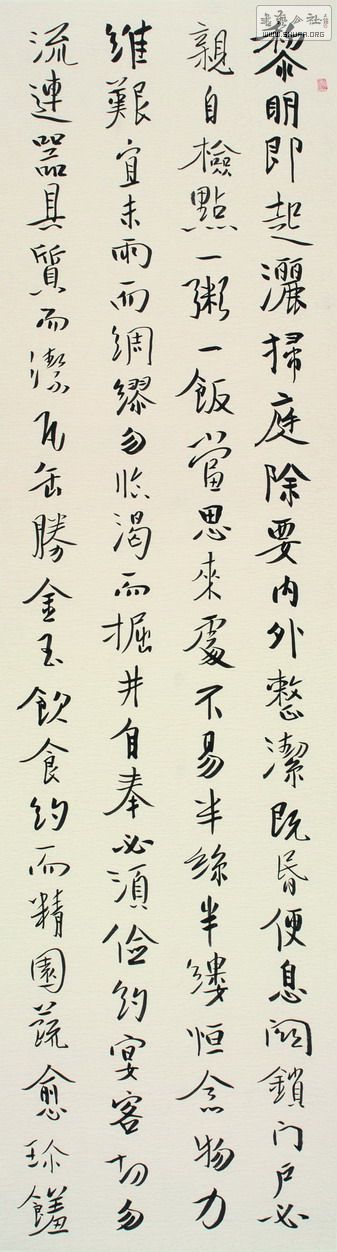 黎明即起灑掃庭除要内外整潔既昏便息関鎖门户必
親自檢點一粥一飯當思來處不易半絲半縷恒念物力
維艱宜未雨而綢繆勿临渴而掘井自奉必須儉约宴客切勿
流連器具質而潔瓦缶勝金玉飲食约而精園蔬愈珍饈
公社
WWW.SHUFA.ORG